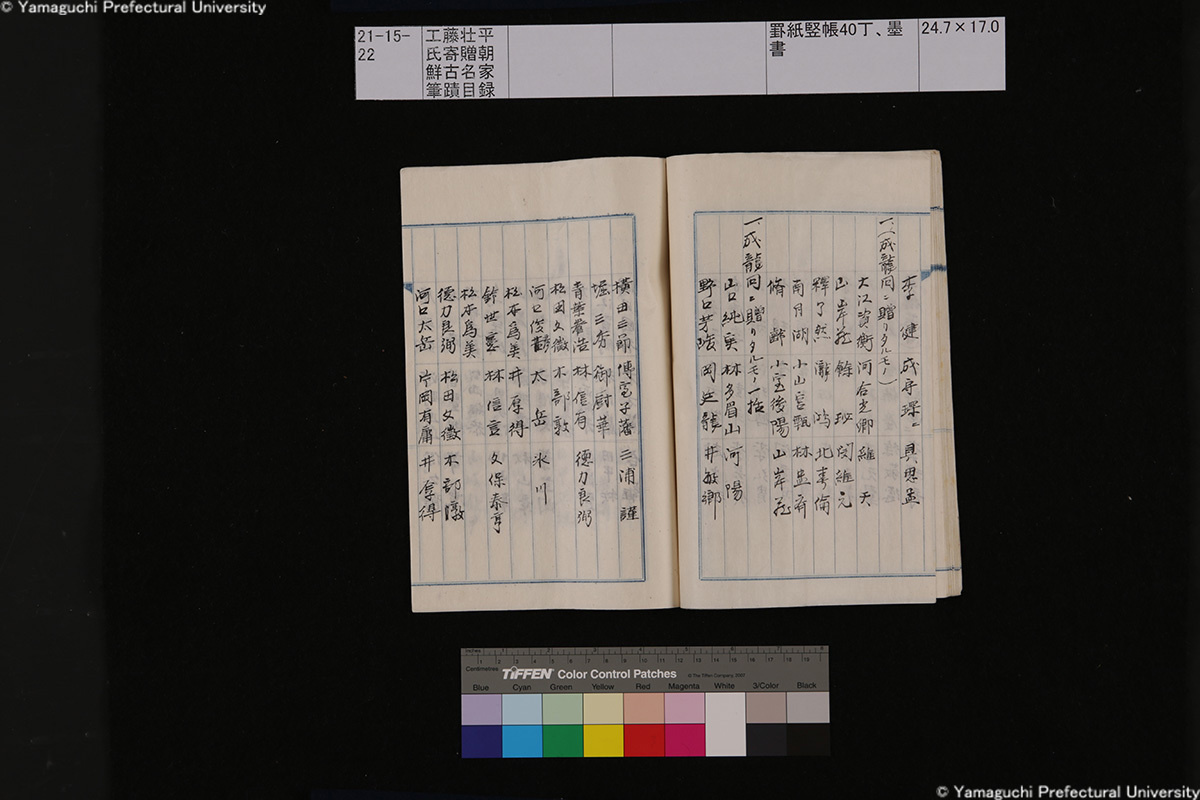 © Yamaguchi Prefectural University
21-15-
22
工藤壮平
氏寄贈朝
鮮古名家
筆蹟目録
罫紙竪帳40丁、墨
書
24.7×17.0
李 健 成守琛ニ 具思孟
一、(成龍同ニ贈リタルモノ)
大江資衡 河合光卿 維 天
山岸蔵 餘 玖 関維元
釋了然 瀧 鴻 北春倫
南月湖 小山宮甄 林孟斎
脩 齢 小室後陽 山岸蔵
一、成龍同ニ贈リタルモノ一括
山口純実 林多眉山 河 陽
野口 岡延龍 井敏卿
横田三 傅電子藩 三浦 謹
堀 三秀 御厨 華
青葉養浩 林 信有 徳力良弼
松田文徴 木部 敦
河口俊 太 岳 氷 川
松本為美 井 厚得
鈴世 林 信言 久保泰亨
松本為美
徳力良弼 松田文徴 木部 敦
河口太岳 片岡有庸 井 厚得
Inches
Centimetres
TIFFEN Color Control Patches
© The Tiffen Company, 2007
Blue Cyan Green Yellow Red Magenta White 3/Color Black
© Yamaguchi Prefectural University